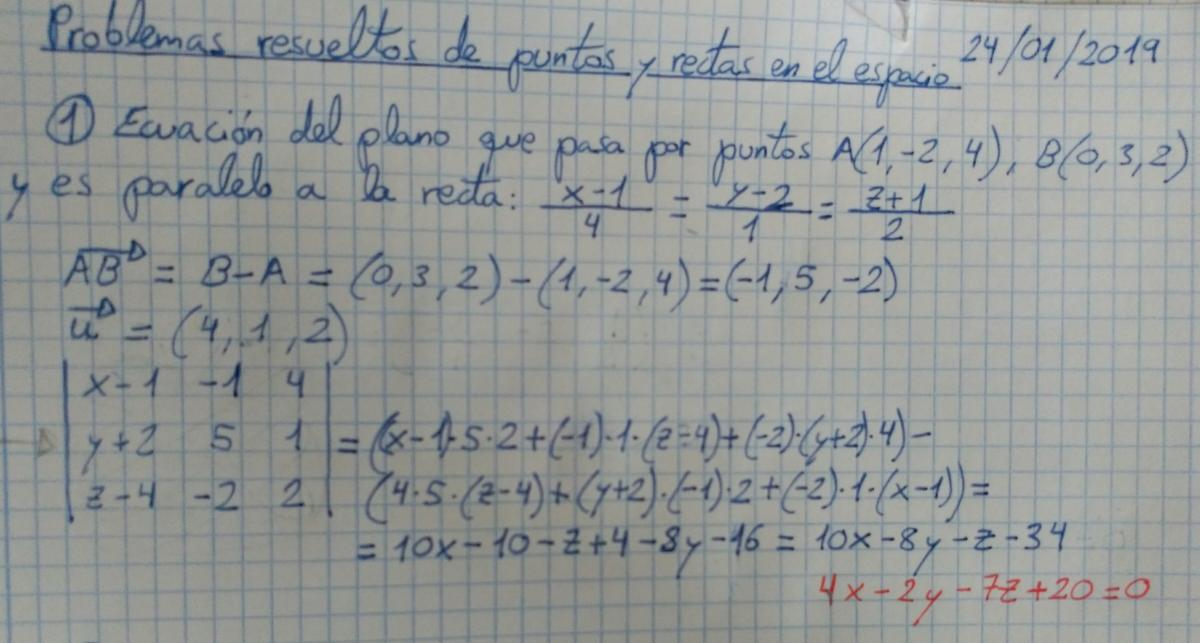 Problemas resueltos de puntos y rectas en el espacio 24/01/2019
① Ecuación del plano que pasa por puntos A(1,-2,4), B(0,3,2)
y es paralelo a la recta: (x-1)/4 = (y-2)/1 = (z+1)/2
AB→ = B-A = (0,3,2)-(1,-2,4)=(-1,5,-2)
u→ = (4,1,2)
| x-1 -1 4 |
| y+2 5 1 | = (x-1)·5·2+(-1)·1·(z-4)+(-2)·(y+2)·4)-
| z-4 -2 2 | (4·5·(z-4)+(y+2)·(-1)·2+(-2)·1·(x-1))=
= 10x-10-z+4-8y-16 = 10x-8y-z-34
4x-2y-7z+20=0